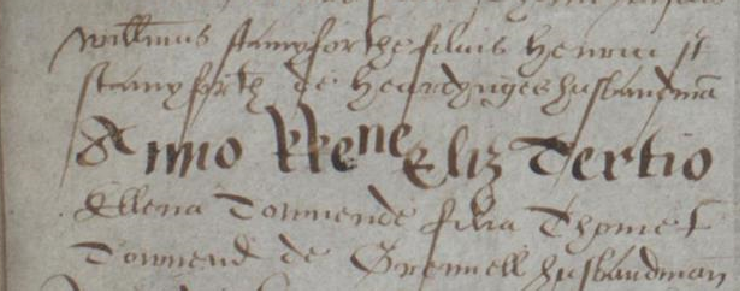 willmus stanyforthe filius Henrici
stanyforth de Heardynges husbandmā
Anno RRene Eliz Tertio
Ellena Townende filia Thome
Townend de Grennell husbandman